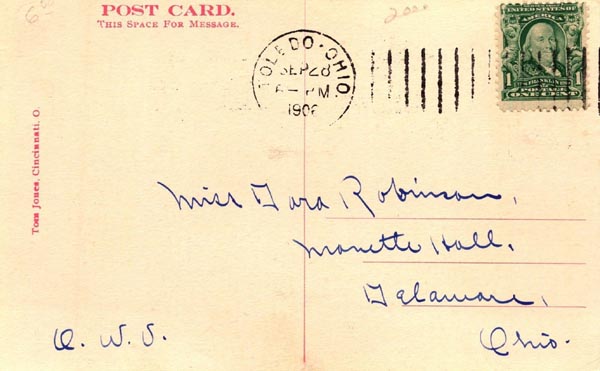 POST CARD.
THIS SPACE FOR MESSAGE.
TOLEDO · OHIO.
SEP 28
6 - PM
190
UNITED STATES OF
AMERICA
1 FRANKLIN 1
POSTAGE
ONE CENT
Tom Jones, Cincinnati, O.
Miss Robinson,
Monette Hall.
Delaware,
Ohio.
O. W. U.